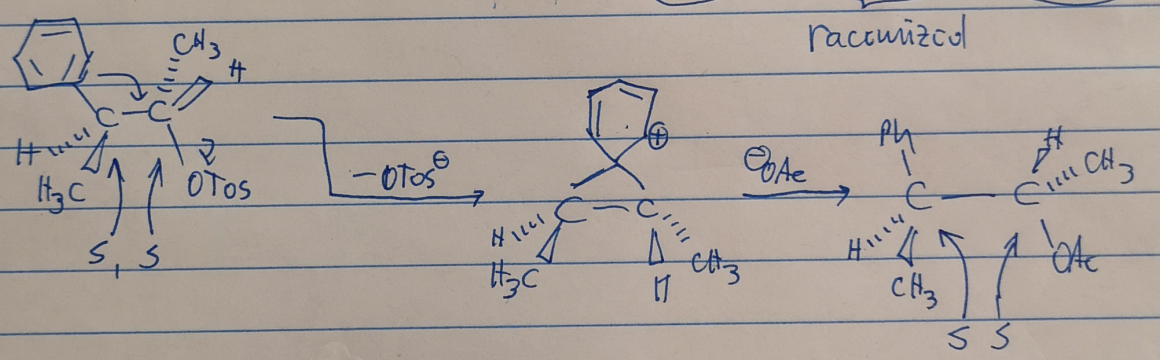 racemized
CH₃
H
C C
H H₃C OTos
S, S
−OTos⊖
⊕
C C
H H₃C H CH₃
⊖OAc
Ph H CH₃
C C
H CH₃ OAc
S S